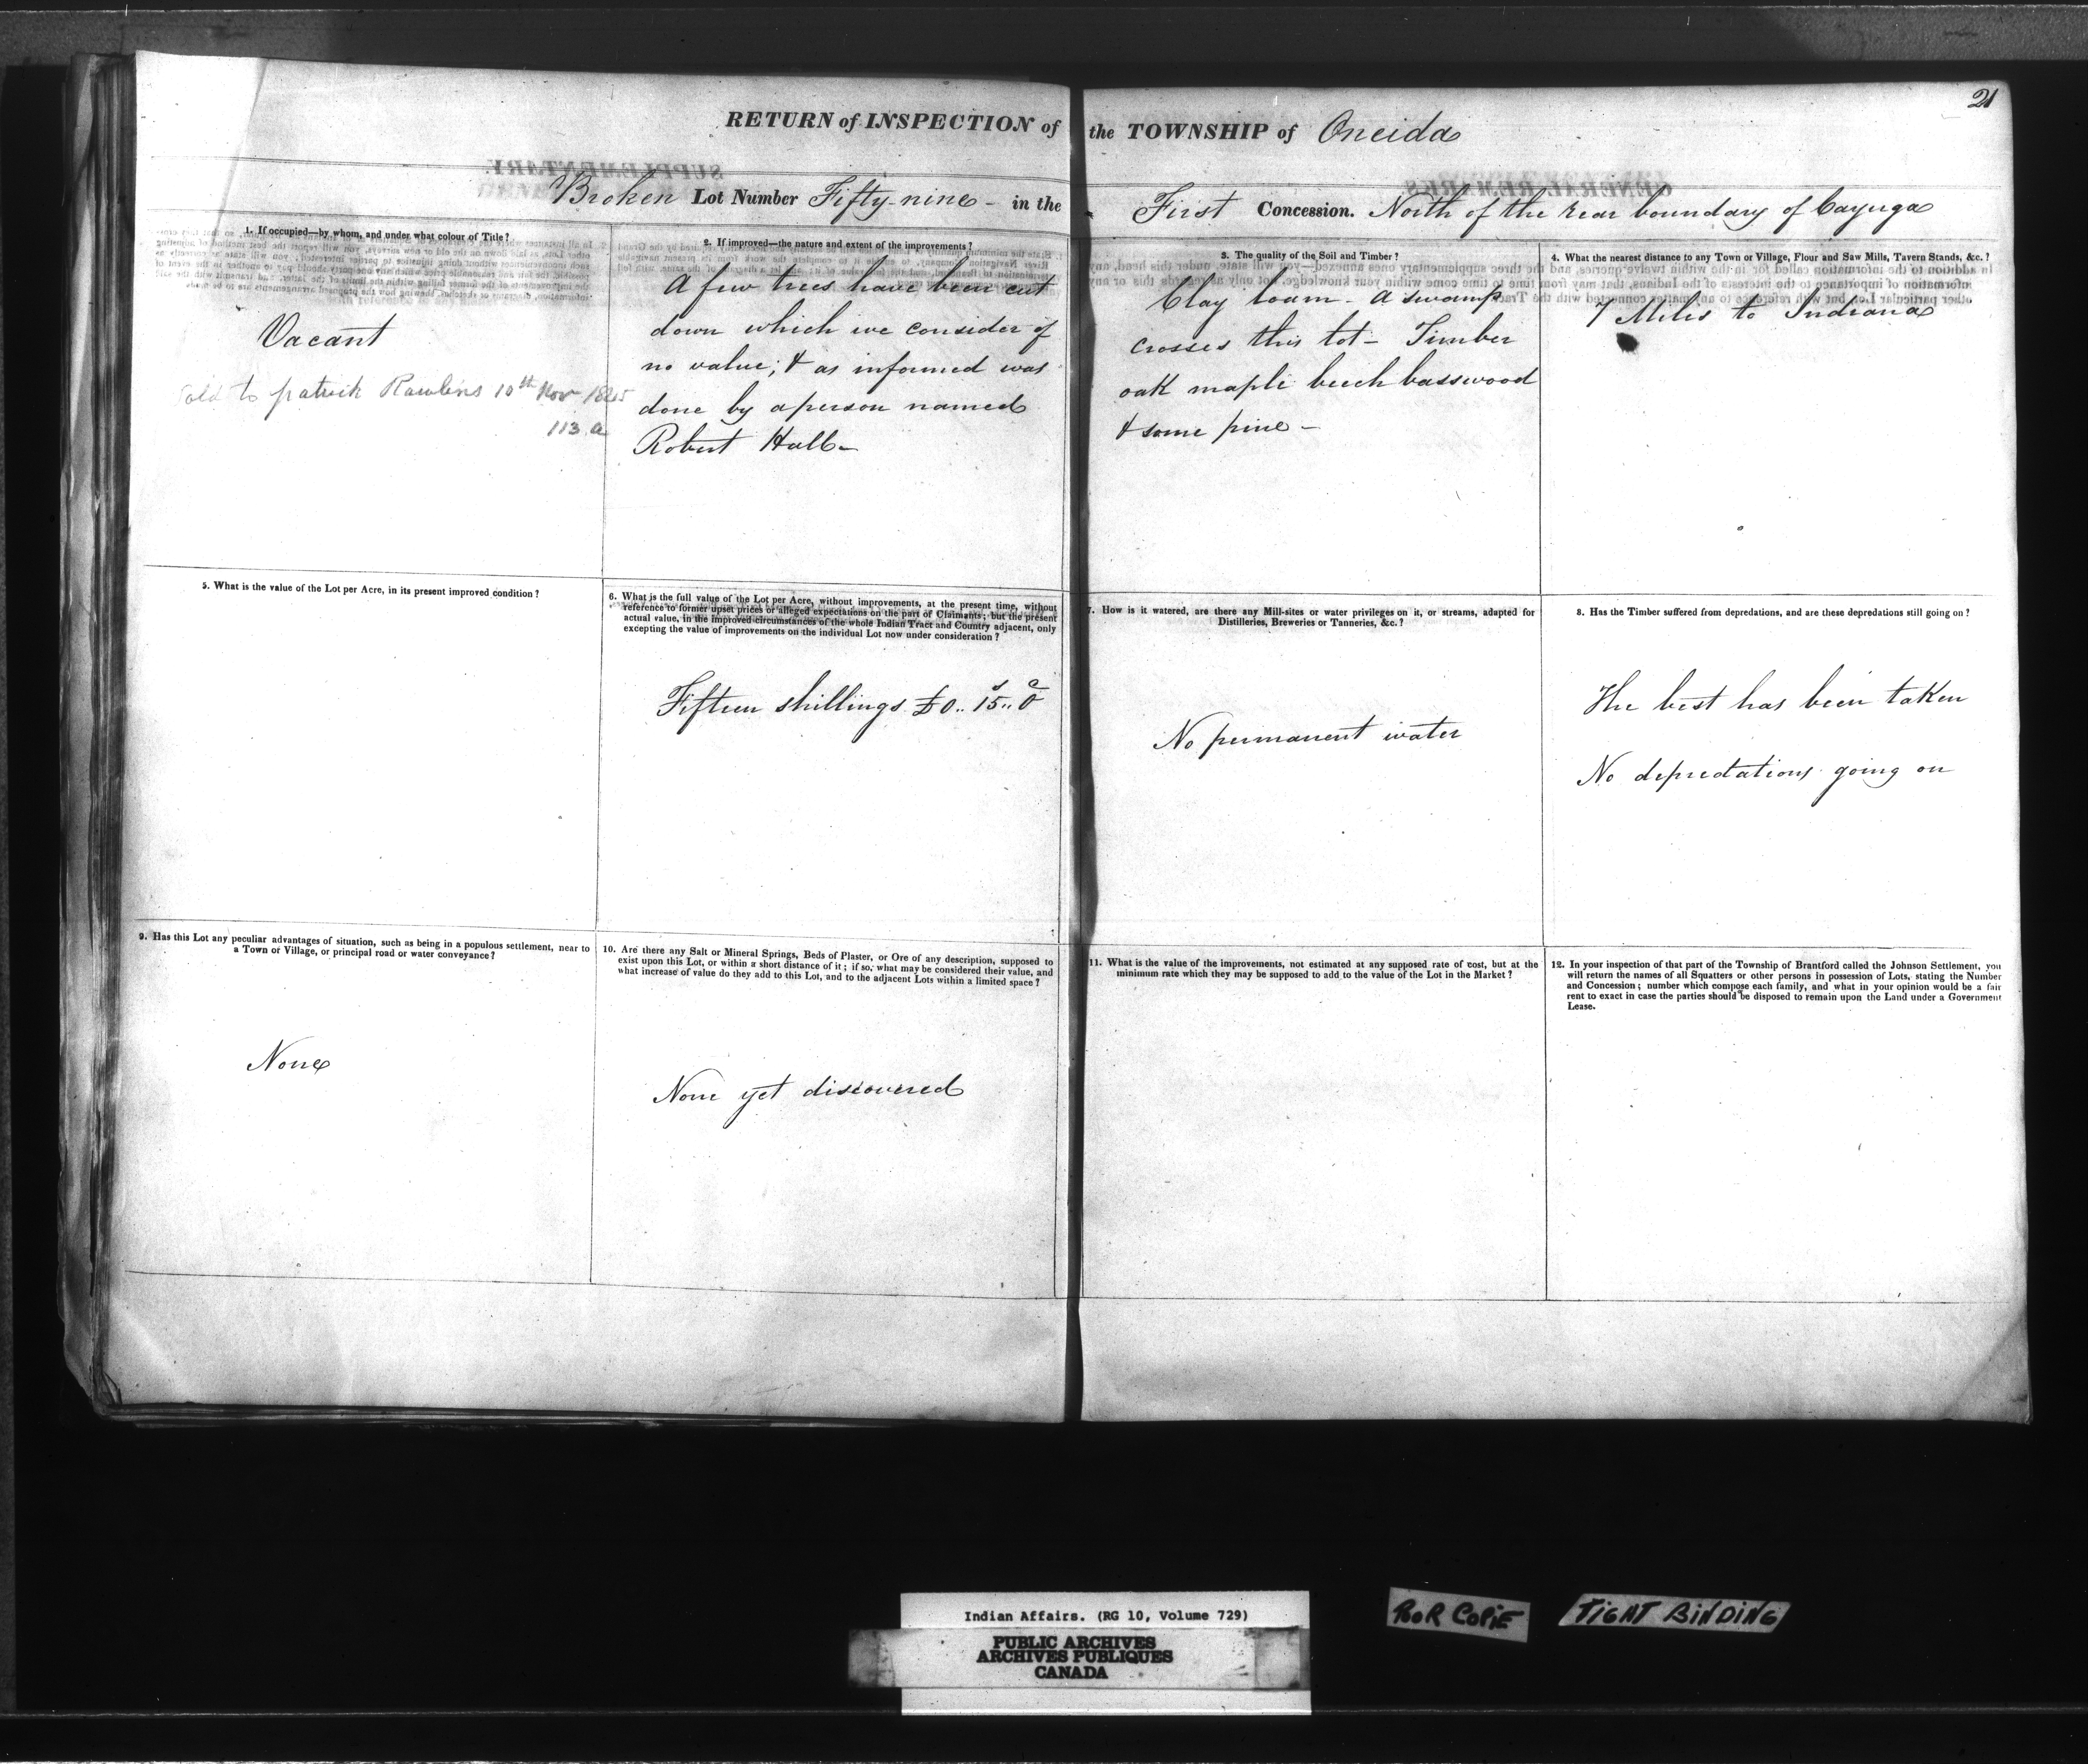 21
RETURN of INSPECTION of the TOWNSHIP of Oneida
Broken Lot Number Fifty-nine - in the First Concession. North of the rear boundary of Cayuga
1. If occupied—by whom, and under what colour of Title?
Vacant
Sold to patrick Rawlins 10th Nov 1845
113 a
2. If improved—the nature and extent of the improvements?
A few trees have been cut
down which we consider of
no value; & as informed was
done by a person named
Robert Hall-
3. The quality of the Soil and Timber?
Clay loam - a swamp
crosses this lot - Timber
oak maple beech basswood
& some pine -
4. What the nearest distance to any Town or Village, Flour and Saw Mills, Tavern Stands, &c.?
7 Miles to Indiana
5. What is the value of the Lot per Acre, in its present improved condition?
6. What is the full value of the Lot per Acre, without improvements, at the present time, without
reference to former upset prices or alleged expectations on the part of Claimants; but the present
actual value, in the improved circumstances of the whole Indian Tract and Country adjacent, only
excepting the value of improvements on the individual Lot now under consideration?
Fifteen shillings £0.. 15.. 0
7. How is it watered, are there any Mill-sites or water privileges on it, or streams, adapted for
Distilleries, Breweries or Tanneries, &c.?
No permanent water
8. Has the Timber suffered from depredations, and are these depredations still going on?
The best has been taken
No depredations going on
9. Has this Lot any peculiar advantages of situation, such as being in a populous settlement, near to
a Town or Village, or principal road or water conveyance?
None
10. Are there any Salt or Mineral Springs, Beds of Plaster, or Ore of any description, supposed to
exist upon this Lot, or within a short distance of it; if so, what may be considered their value, and
what increase of value do they add to this Lot, and to the adjacent Lots within a limited space?
None yet discovered
11. What is the value of the improvements, not estimated at any supposed rate of cost, but at the
minimum rate which they may be supposed to add to the value of the Lot in the Market?
12. In your inspection of that part of the Township of Brantford called the Johnson Settlement, you
will return the names of all Squatters or other persons in possession of Lots, stating the Number
and Concession; number which compose each family, and what in your opinion would be a fair
rent to exact in case the parties should be disposed to remain upon the Land under a Government
Lease.
Indian Affairs. (RG 10, Volume 729)
PUBLIC ARCHIVES
ARCHIVES PUBLIQUES
CANADA
POOR COPIE
TIGHT BINDING